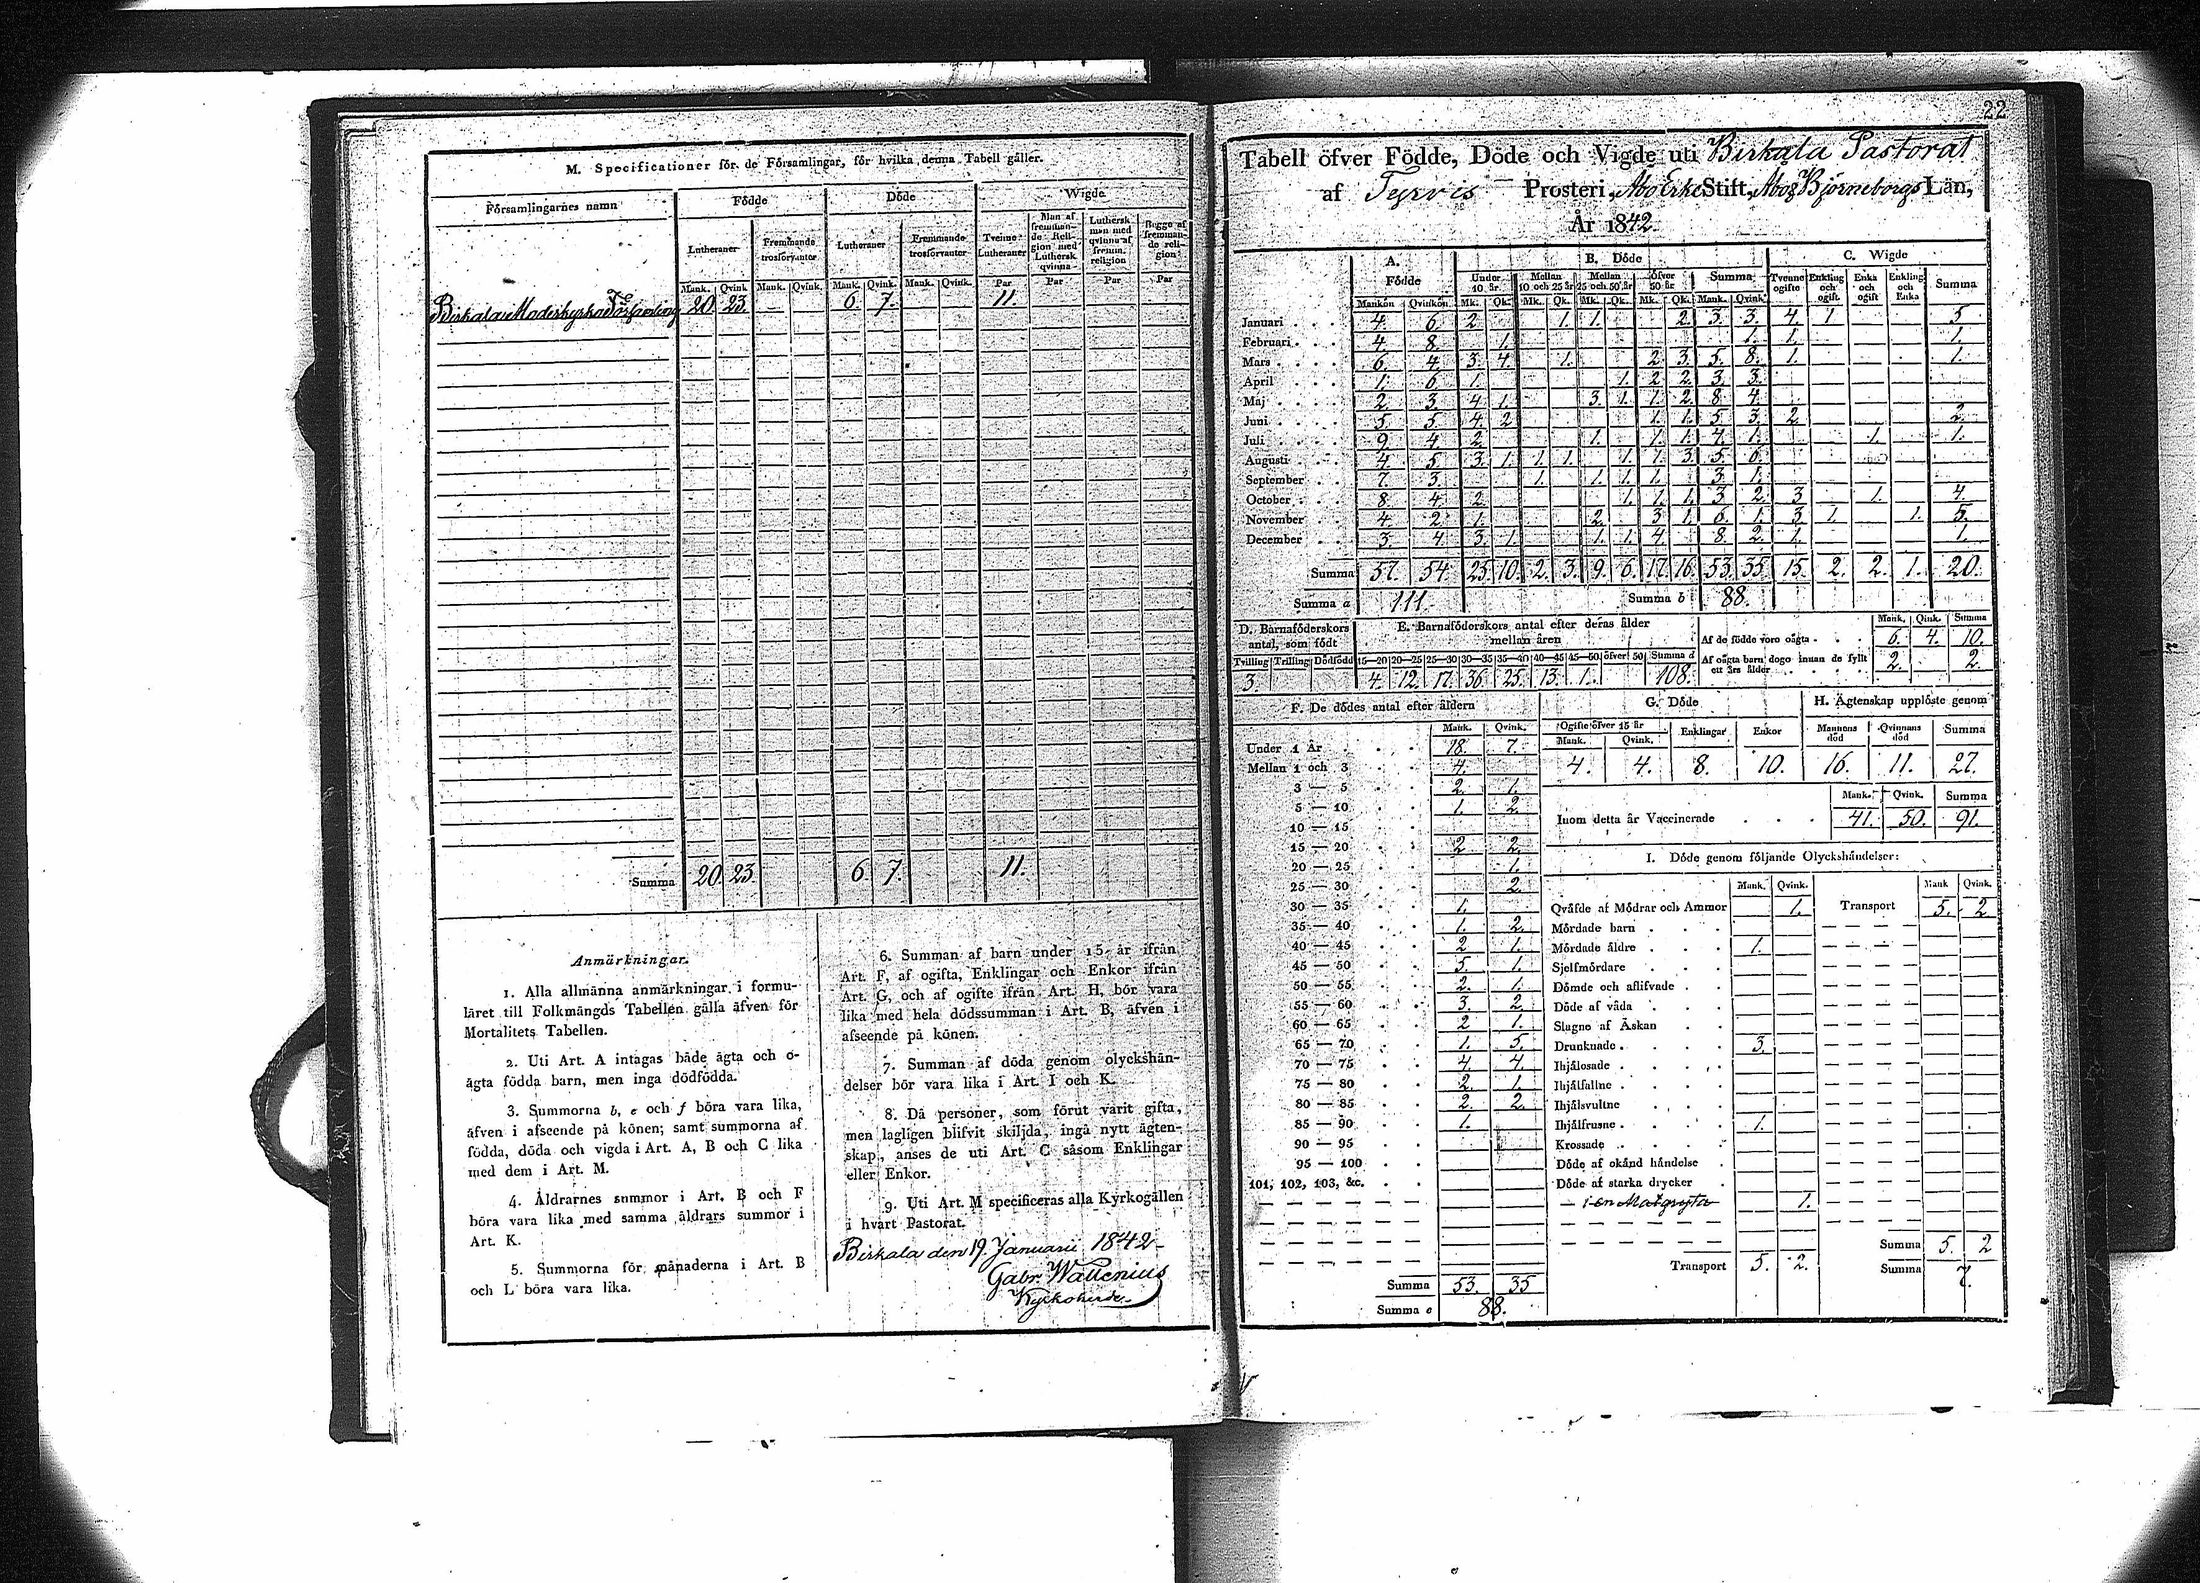 M. Specificationer för de Församlingar, för hvilka denna Tabell gäller.
Församlingarnes namn Födde Döde Wigde
Lutheraner Fremmande trosförvanter Lutheraner Fremmande trosförvanter Tvenne Lutheraner Man af fremmande Religion med Luthersk qvinna Luthersk man med qvinna af fremm. religion Begge af fremmande religion
Mank. Qvink Mank. Qvink. Mank. Qvink. Mank. Qvink. Par Par Par Par
Birkala Moderkyrko Församling 20. 23. 6. 7. 11.
Summa 20. 23. 6 7. 11.
Anmärkningar.
1. Alla allmänna anmärkningar i formu-
läret till Folkmängds Tabellen gälla äfven för
Mortalitets Tabellen.
2. Uti Art. A intagas både ägta och o-
ägta födda barn, men inga dödfödda.
3. Summorna b, e och f böra vara lika,
äfven i afseende på könen; samt summorna af
födda, döda och vigda i Art. A, B och C lika
med dem i Art. M.
4. Åldrarnes summor i Art. B och F
böra vara lika med samma åldrars summor i
Art. K.
5. Summorna för månaderna i Art. B
och L böra vara lika.
6. Summan af barn under 15 år ifrån
Art. F, af ogifta, Enklingar och Enkor ifrån
Art. G, och af ogifte ifrån Art. H, bör vara
lika med hela dödssumman i Art. B, äfven i
afseende på könen.
7. Summan af döda genom olyckshän-
delser bör vara lika i Art. I och K.
8. Då personer, som förut varit gifta,
men lagligen blifvit skiljda, ingå nytt ägten-
skap, anses de uti Art. C såsom Enklingar
eller Enkor.
9. Uti Art. M specificeras alla Kyrkogällen
i hvart Pastorat.
Birkala den 19. Januarii 1842
Gabr. Wallenius
Kyrkoherde
22
Tabell öfver Födde, Döde och Vigde uti Birkala Pastorat
af Tyrvis Prosteri, Abo Erke Stift, Abo & Björneborgs Län,
År 1842.
A. Födde B. Döde C. Wigde
Under 10 år Mellan 10 och 25 år Mellan 25 och 50 år Öfver 50 år Summa Tvenne ogifte Enkling och ogift Enka och ogift Enkling och Enka Summa
Mankön Qvinkön Mk. Qk. Mk. Qk. Mk. Qk. Mk. Qk. Mank. Qvink.
Januari 4. 6. 2. 1. 1. 2. 3. 3. 4. 1. 5
Februari 4. 8. 1. 1. 1. 1.
Mars 6. 4. 3. 4. 1. 2. 3. 5. 8. 1. 1.
April 1. 6. 1. 1. 2. 2. 3. 3.
Maj 2. 3. 4. 1. 3. 1. 1. 2. 8. 4.
Juni 5. 5. 4. 2 1. 1. 5. 3. 2. 2.
Juli 9. 4. 2. 1. 1. 1. 4. 1. 1. 1.
Augusti 4. 5. 3. 1. 1. 1. 1. 1. 3. 5 6.
September 7. 3. 1. 1. 1. 1. 3. 1.
October 8. 4. 2. 1. 1. 1. 3. 2. 3 1. 4.
November 4. 2. 1. 2. 3. 1. 6. 1. 3. 1. 1. 5.
December 3. 4. 3. 1. 1. 1. 4. 8. 2. 1. 1.
Summa 57. 54. 25. 10. 2. 3. 9. 6. 17. 16. 53. 35. 15. 2. 2. 1. 20.
Summa a 111. Summa b 88.
D. Barnaföderskors antal, som födt
E. Barnaföderskors antal efter deras ålder mellan åren
Tvilling Trilling Dödfödd 15—20 20—25 25—30 30—35 35—40 40—45 45—50 öfver 50 Summa d
3. 4. 12. 17. 36. 25. 13. 1. 108.
Mank. Qink. Summa
Af de födde voro oägta 6. 4. 10.
Af oägta barn dogo innan de fyllt ett års ålder 2. 2.
F. De dödes antal efter åldern
Mank. Qvink.
Under 1 År 18. 7.
Mellan 1 och 3 4.
3 — 5 2. 1.
5 — 10 1. 2.
10 — 15
15 — 20 2 2.
20 — 25 1.
25 — 30 2.
30 — 35 1.
35 — 40 1. 2.
40 — 45 2 1.
45 — 50 5. 1.
50 — 55 2. 1.
55 — 60 3. 2.
60 — 65 2 1.
65 — 70 1. 5.
70 — 75 4. 4.
75 — 80 2. 1.
80 — 85 2. 2.
85 — 90 1.
90 — 95
95 — 100
101, 102, 103, &c.
Summa 53. 35
Summa e 88.
G. Döde
Ogifte öfver 15 år Enklingar Enkor
Mank. Qvink.
4. 4. 8. 10.
H. Ägtenskap upplöste genom
Mannens död Qvinnans död Summa
16. 11. 27.
Mank. Qvink. Summa
Inom detta år Vaccinerade 41. 50. 91.
I. Döde genom följande Olyckshändelser:
Mank. Qvink. Mank Qvink.
Qväfde af Mödrar och Ammor 1. Transport 5. 2
Mördade barn
Mördade äldre 1.
Sjelfmördare
Dömde och aflifvade
Döde af våda
Slagne af Åskan
Drunknade 3.
Ihjälosade
Ihjälfallne
Ihjälsvultne
Ihjälfrusne 1.
Krossade
Döde af okänd händelse
Döde af starka drycker
i en Matgryta 1.
Transport 5. 2.
Summa 5. 2
Summa 7.